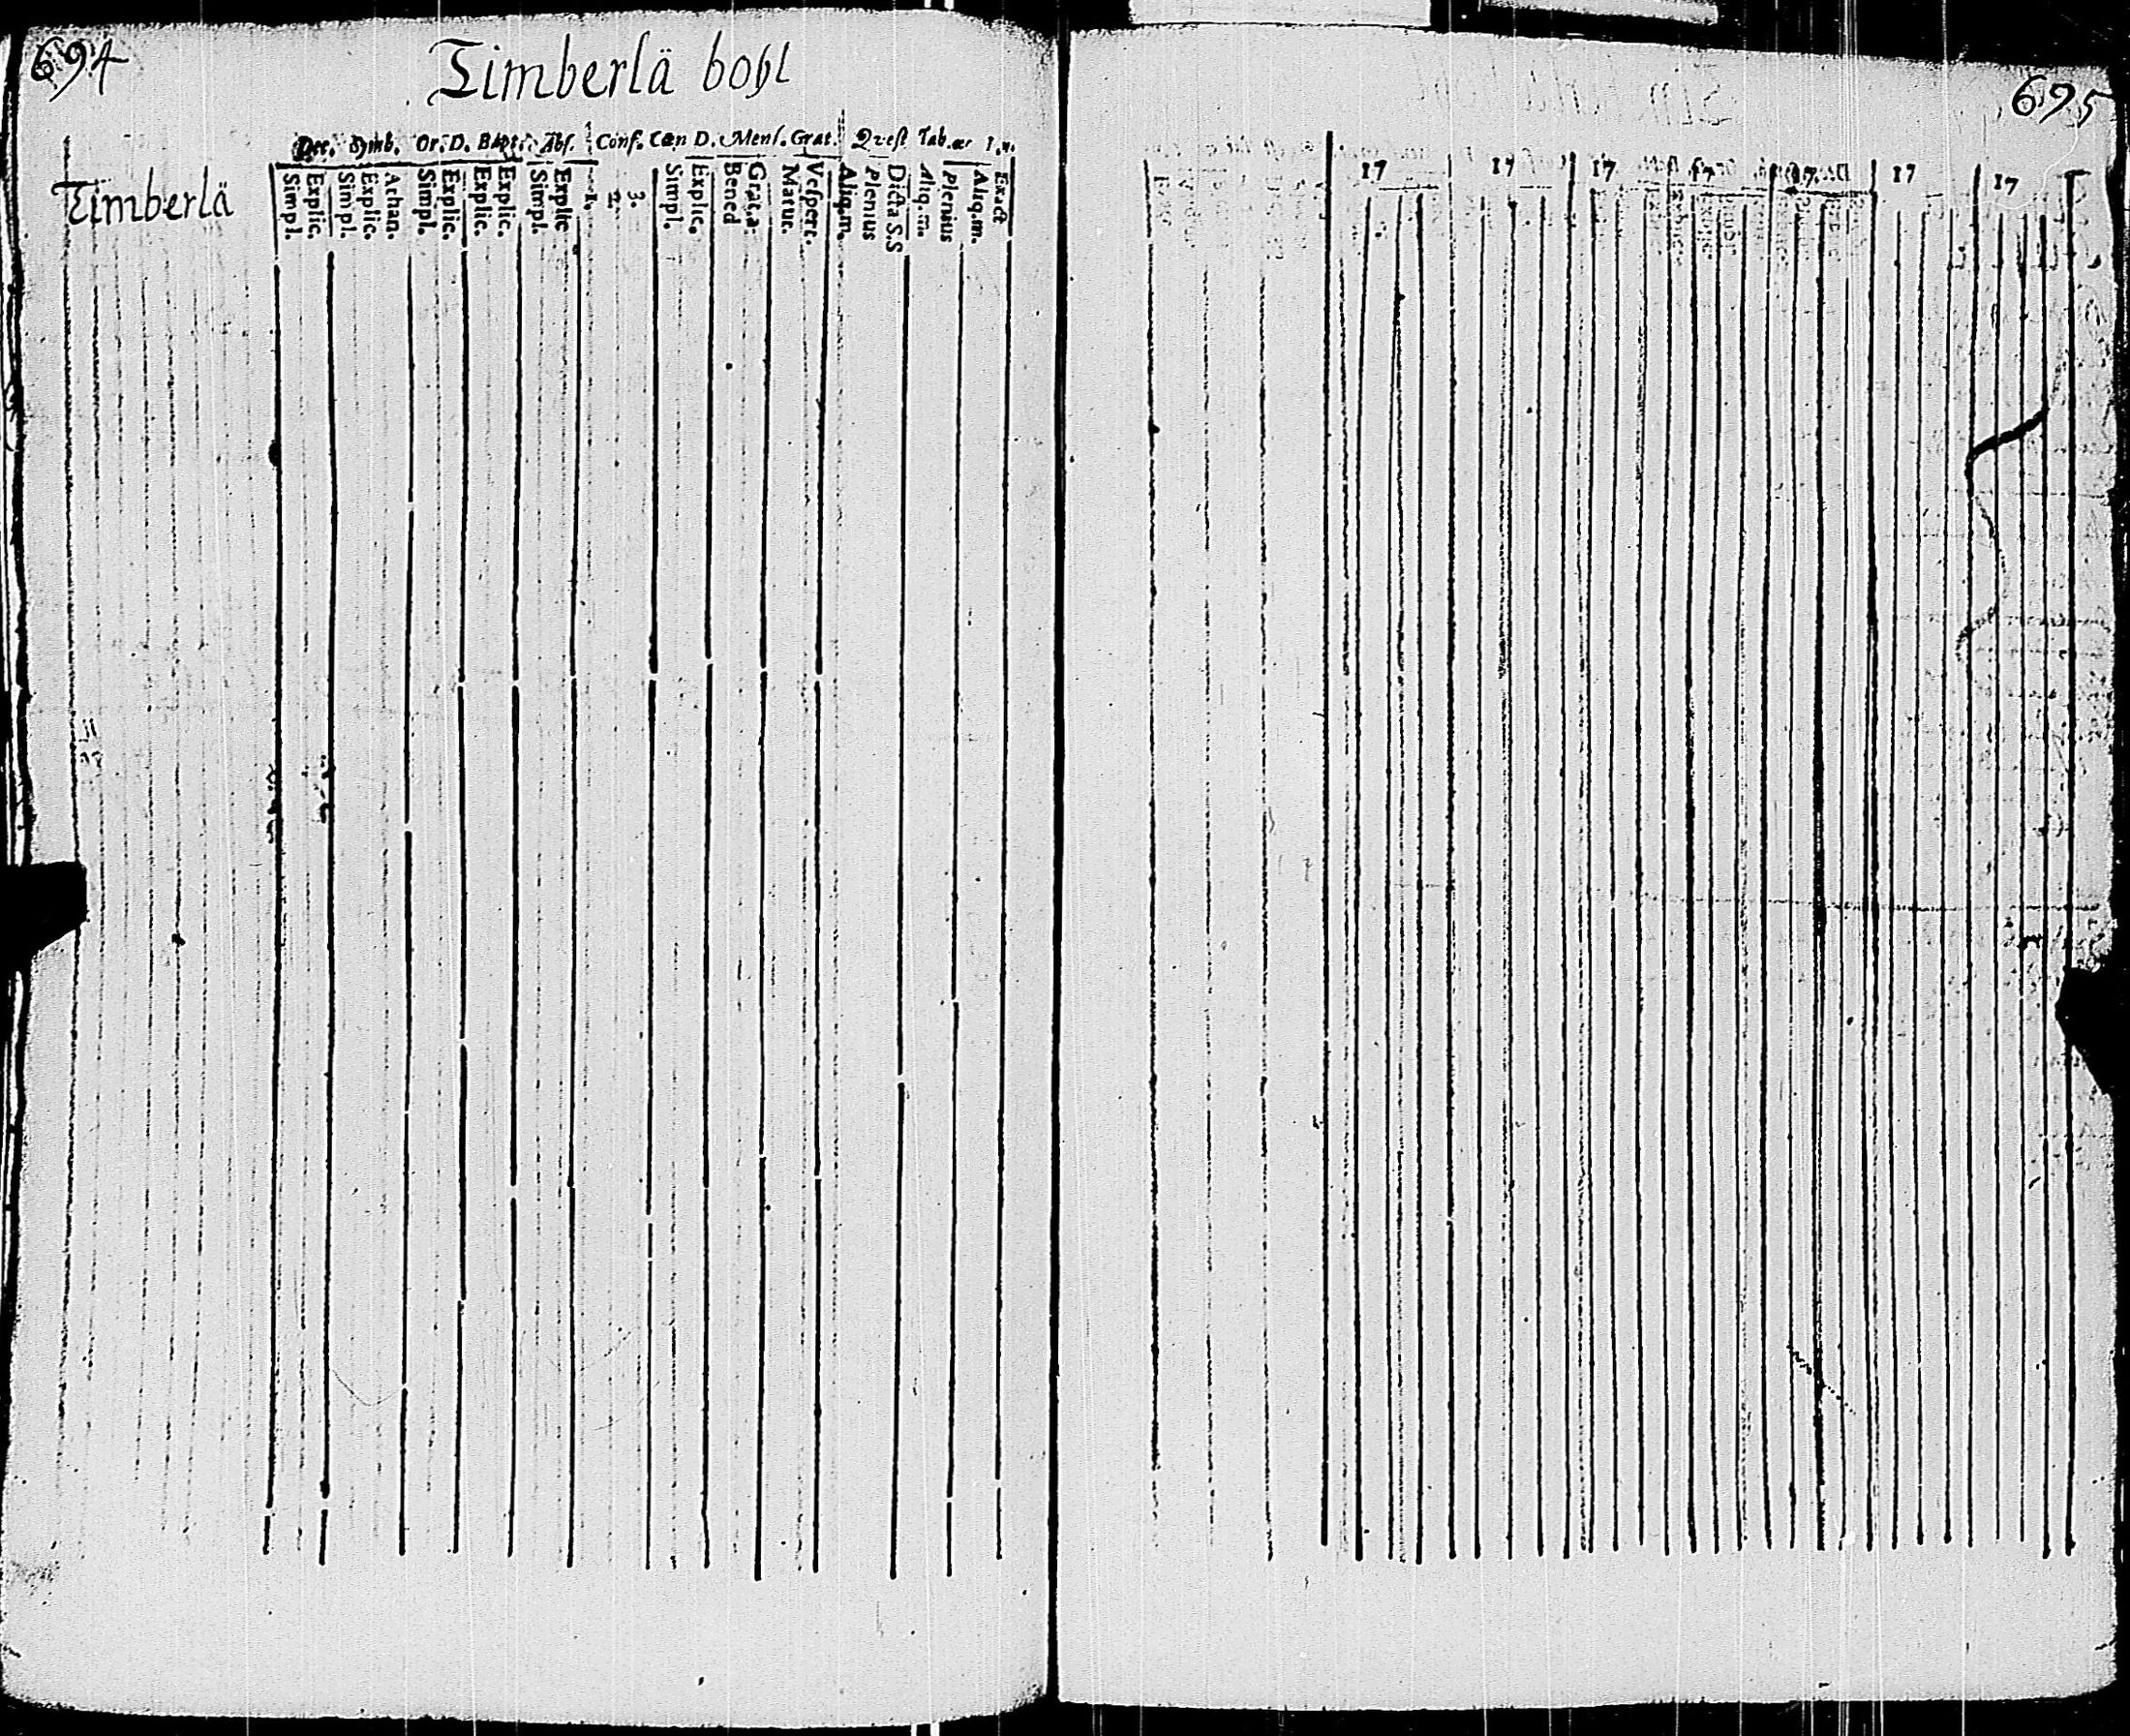 694
Timberlä bohl
Dec. Symb. Or. D. Bapt. Abs. Conf. Cœn D. Mens. Grat. Qvest Tab. œc
Timberlä
Simpl. Explic. Simpl. Explic. Athan. Simpl. Explic. Explic. Explic. Simpl. Explic 1. 2. 3. Simpl. Explic. Bened Grat.a Matut. Vespert. Aliq.m. Plenius Dicta S.S Aliq.m. Plenius Aliq.m. Exact
695
17 17 17 17 17 17 17